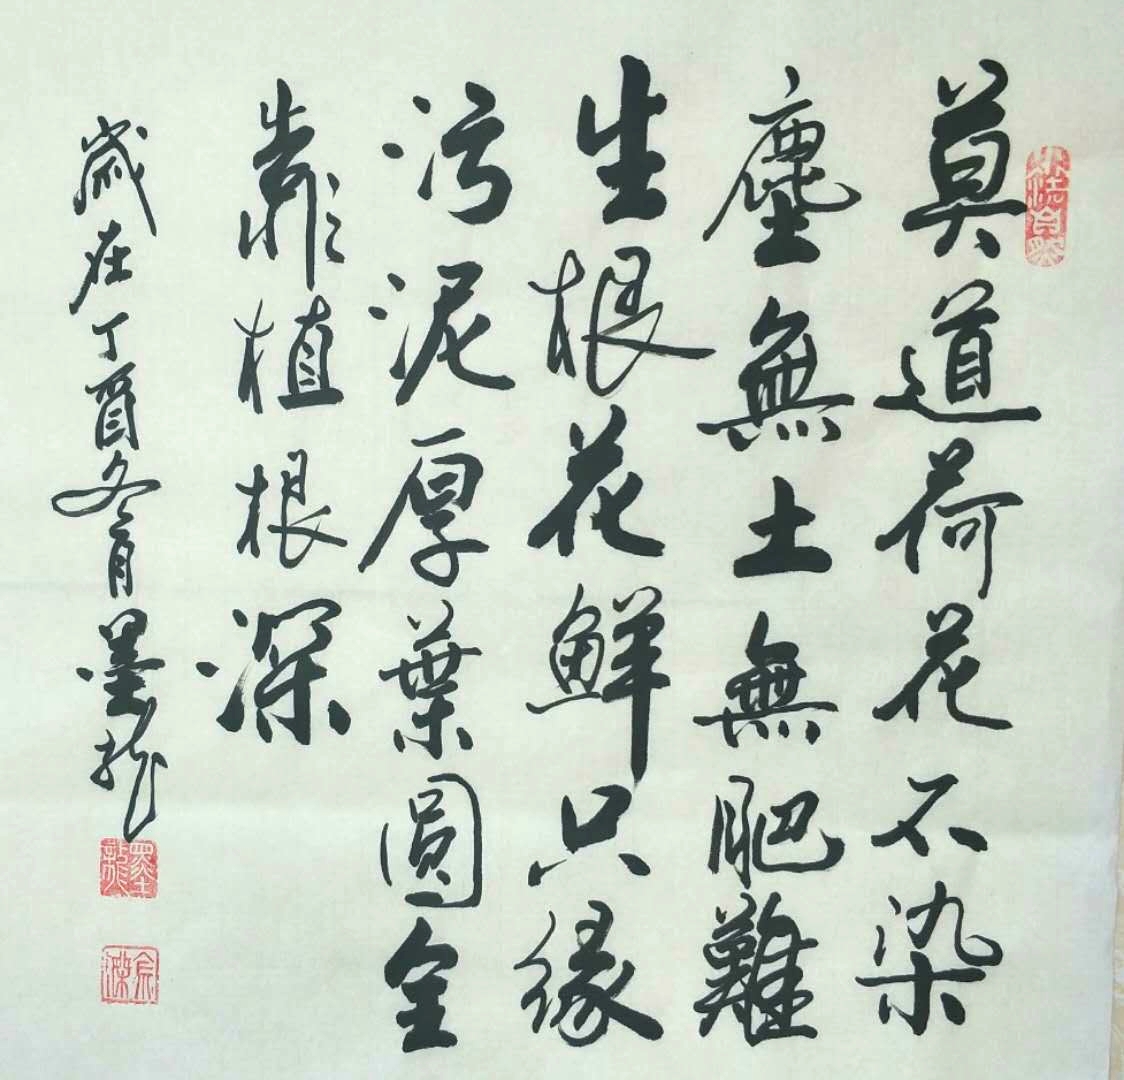 莫道荷花不染
塵無土無肥難
生根花鮮只緣
污泥厚葉圓全
靠植根深
歲在丁酉冬月墨龙
墨龍